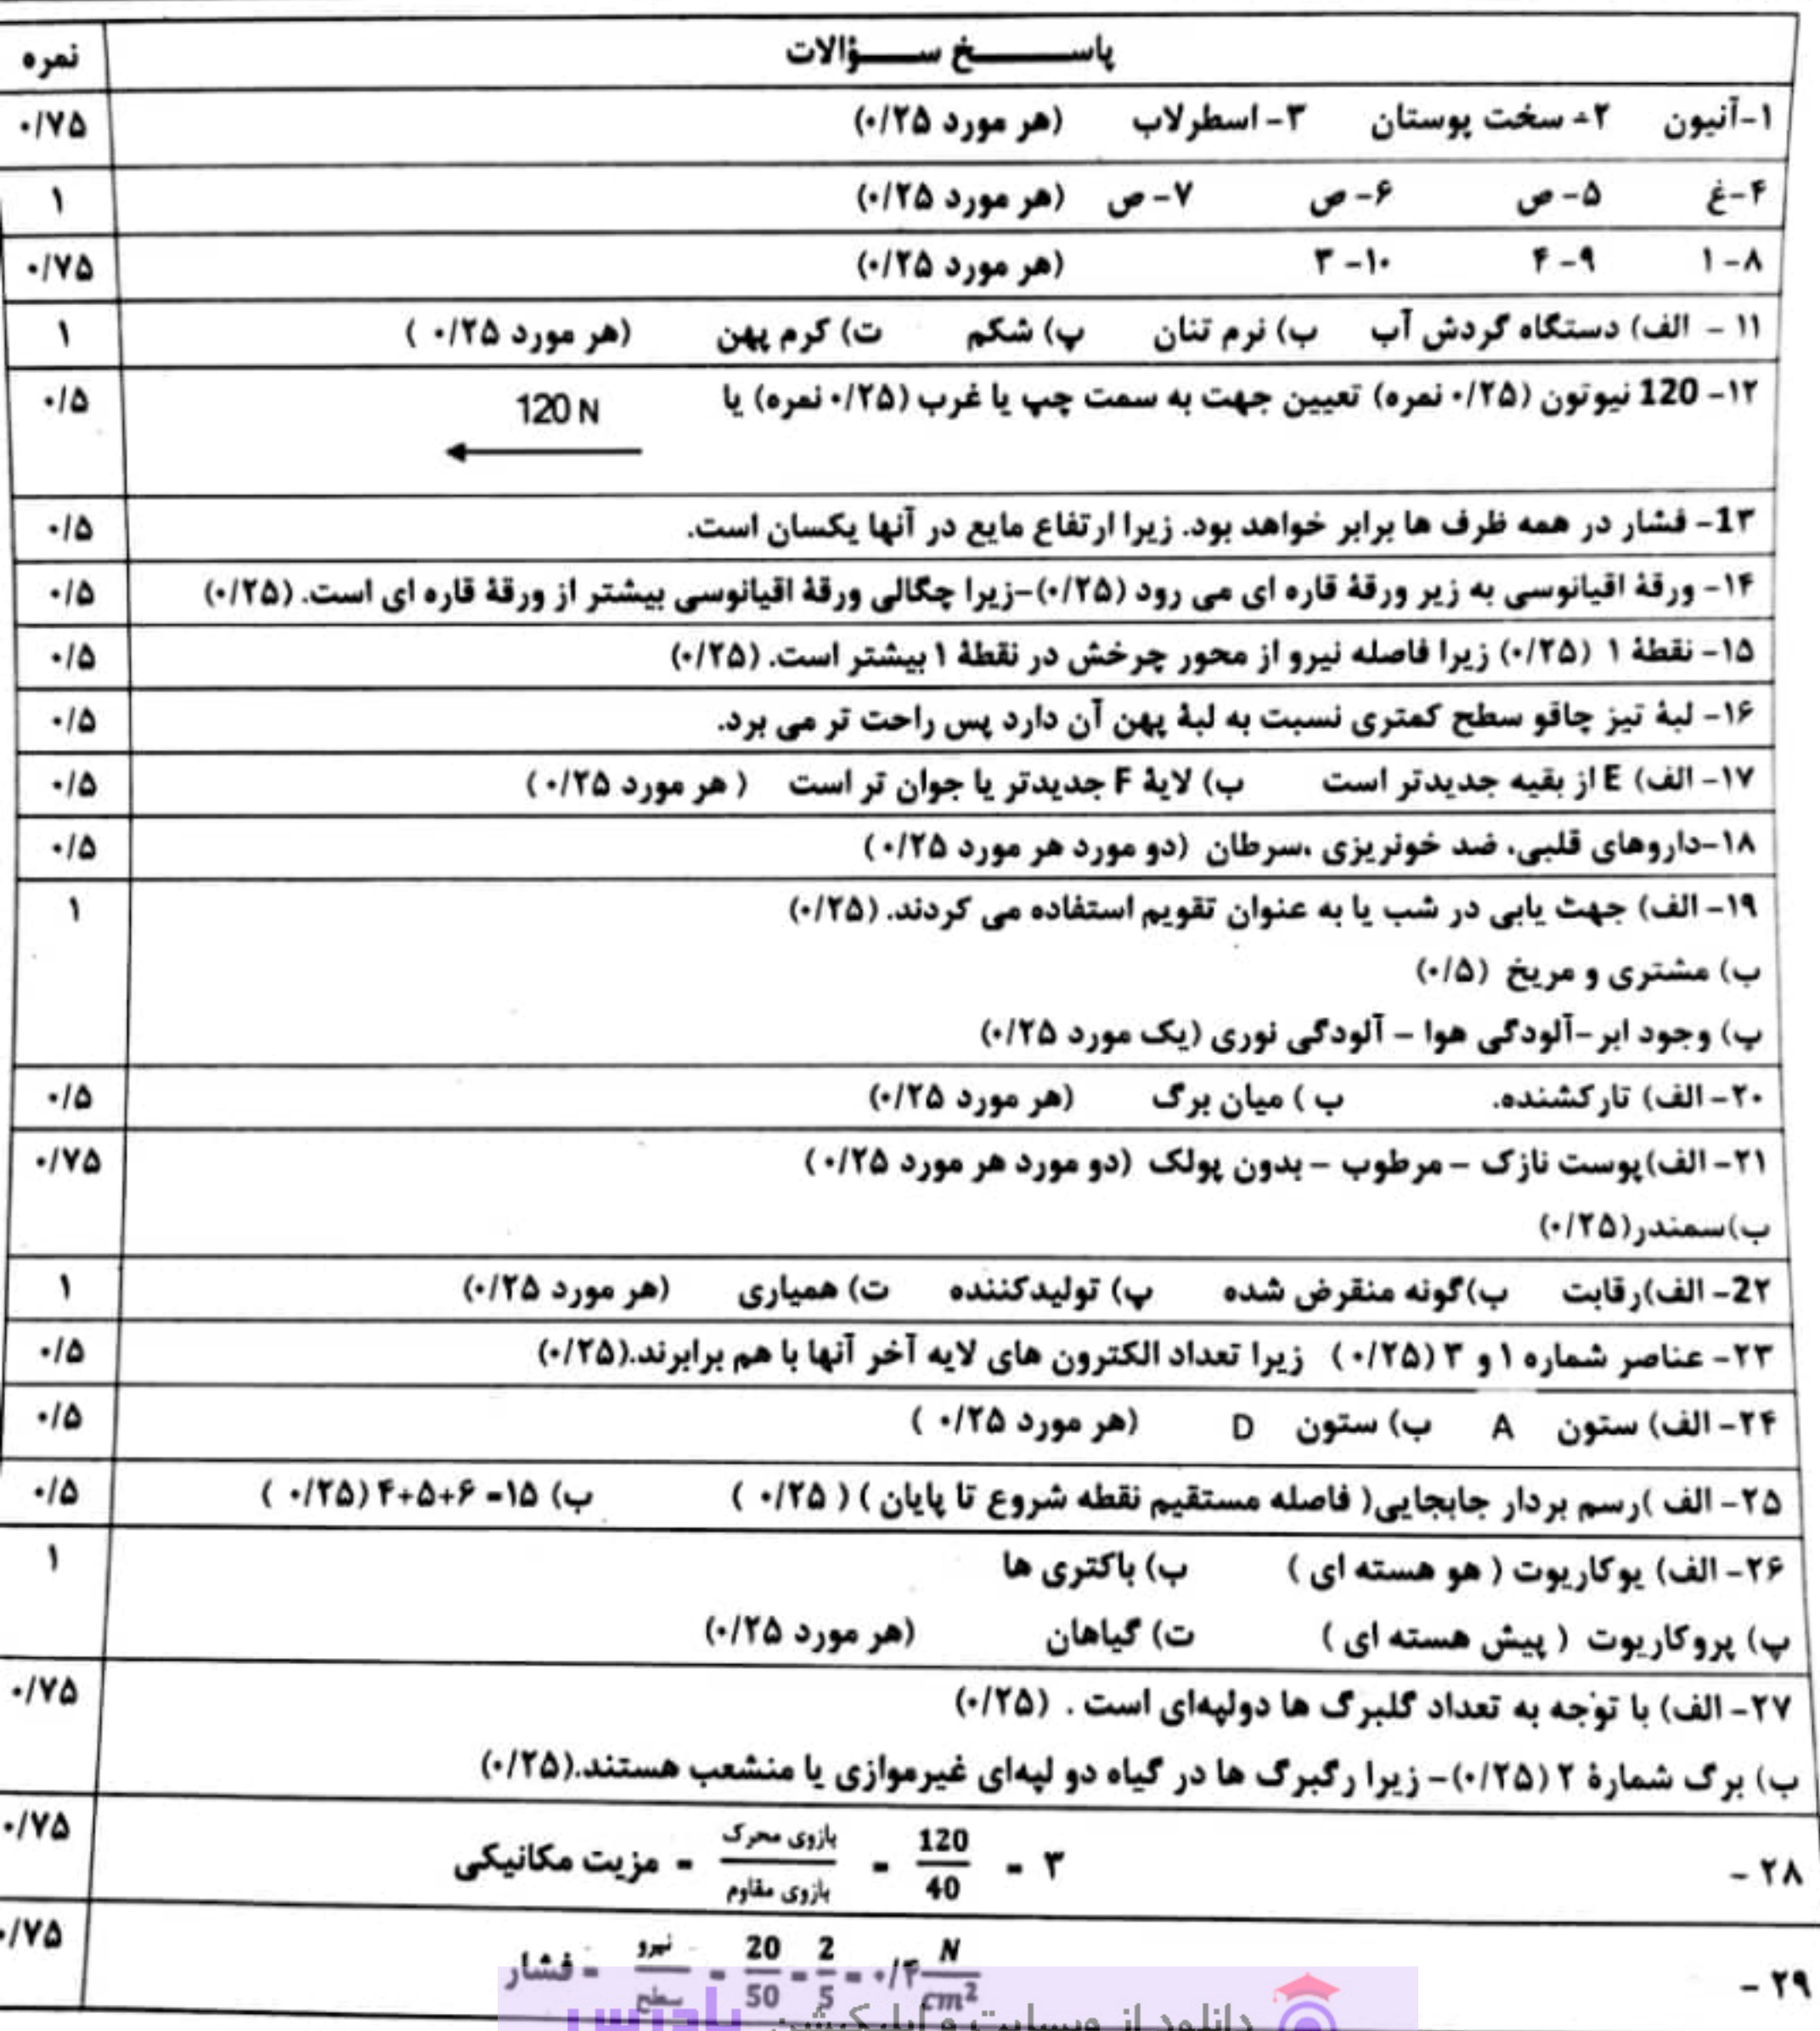 پاسخ سؤالات نمره
۱-آنیون ۲- سخت پوستان ۳- اسطرلاب (هر مورد ۰/۲۵) ۰/۷۵
۴-غ ۵- ص ۶- ص ۷- ص (هر مورد ۰/۲۵) ۱
۸- ۱ ۹- ۴ ۱۰- ۳ (هر مورد ۰/۲۵) ۰/۷۵
۱۱ - الف) دستگاه گردش آب ب) نرم تنان پ) شکم ت) کرم پهن (هر مورد ۰/۲۵ ) ۱
۱۲- 120 نیوتون (۰/۲۵ نمره) تعیین جهت به سمت چپ یا غرب (۰/۲۵ نمره) یا 120 N ۰/۵
1۳- فشار در همه ظرف ها برابر خواهد بود. زیرا ارتفاع مایع در آنها یکسان است. ۰/۵
۱۴- ورقهٔ اقیانوسی به زیر ورقهٔ قاره ای می رود (۰/۲۵)-زیرا چگالی ورقهٔ اقیانوسی بیشتر از ورقهٔ قاره ای است. (۰/۲۵) ۰/۵
۱۵- نقطهٔ ۱ (۰/۲۵) زیرا فاصله نیرو از محور چرخش در نقطهٔ ۱ بیشتر است. (۰/۲۵) ۰/۵
۱۶- لبهٔ تیز چاقو سطح کمتری نسبت به لبهٔ پهن آن دارد پس راحت تر می برد. ۰/۵
۱۷- الف) E از بقیه جدیدتر است ب) لایهٔ F جدیدتر یا جوان تر است ( هر مورد ۰/۲۵ ) ۰/۵
۱۸-داروهای قلبی، ضد خونریزی ،سرطان (دو مورد هر مورد ۰/۲۵ ) ۰/۵
۱۹- الف) جهت یابی در شب یا به عنوان تقویم استفاده می کردند. (۰/۲۵) ۱
ب) مشتری و مریخ (۰/۵)
پ) وجود ابر -آلودگی هوا - آلودگی نوری (یک مورد ۰/۲۵)
۲۰- الف) تارکشنده. ب ) میان برگ (هر مورد ۰/۲۵) ۰/۵
۲۱- الف)پوست نازک - مرطوب - بدون پولک (دو مورد هر مورد ۰/۲۵ ) ۰/۷۵
ب)سمندر(۰/۲۵)
2۲- الف)رقابت ب)گونه منقرض شده پ) تولیدکننده ت) همیاری (هر مورد ۰/۲۵) ۱
۲۳- عناصر شماره ۱ و ۳ (۰/۲۵ ) زیرا تعداد الکترون های لایه آخر آنها با هم برابرند.(۰/۲۵) ۰/۵
۲۴- الف) ستون A ب) ستون D (هر مورد ۰/۲۵ ) ۰/۵
۲۵- الف )رسم بردار جابجایی( فاصله مستقیم نقطه شروع تا پایان ) ( ۰/۲۵ ) ب) ۱۵= ۴+۵+۶ (۰/۲۵ ) ۰/۵
۲۶- الف) یوکاریوت ( هو هسته ای ) ب) باکتری ها ۱
پ) پروکاریوت ( پیش هسته ای ) ت) گیاهان (هر مورد ۰/۲۵)
۲۷- الف) با توجه به تعداد گلبرگ ها دولپه‌ای است . (۰/۲۵) ۰/۷۵
ب) برگ شمارهٔ ۲ (۰/۲۵)- زیرا رگبرگ ها در گیاه دو لپه‌ای غیرموازی یا منشعب هستند.(۰/۲۵)
۲۸ - مزیت مکانیکی = بازوی محرک / بازوی مقاوم = 120 / 40 = ۳ ۰/۷۵
۲۹ - فشار = نیرو / سطح = 20 / 50 = 2 / 5 = ۰/۴ N / cm² ۰/۷۵
دانلود از وبسایت و اپلیکیشن پادرس